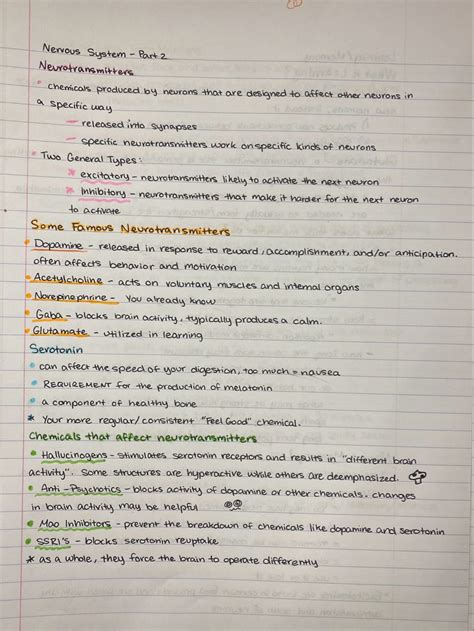 Nervous System - Part 2
Neurotransmitters
chemicals produced by neurons that are designed to affect other neurons in
a specific way
- released into synapses
- specific neurotransmitters work on specific kinds of neurons
Two General Types:
* excitatory - neurotransmitters likely to activate the next neuron
* Inhibitory - neurotransmitters that make it harder for the next neuron
to activate
Some Famous Neurotransmitters
• Dopamine - released in response to reward, accomplishment, and/or anticipation.
often affects behavior and motivation
• Acetylcholine - acts on voluntary muscles and internal organs
• Norepinephrine - You already know
• Gaba - blocks brain activity, typically produces a calm.
• Glutamate - utilized in learning
Serotonin
• can affect the speed of your digestion, too much = nausea
• REQUIREMENT for the production of melatonin
• a component of healthy bone
* Your more regular/consistent "Feel Good" chemical.
Chemicals that affect neurotransmitters
• Hallucinogens - stimulates serotonin receptors and results in "different brain
activity". Some structures are hyperactive while others are deemphasized.
• Anti-Psychotics - blocks activity of dopamine or other chemicals. changes
in brain activity may be helpful
• Mao Inhibitors - prevent the breakdown of chemicals like dopamine and serotonin
• SSRI's - blocks serotonin reuptake
* as a whole, they force the brain to operate differently